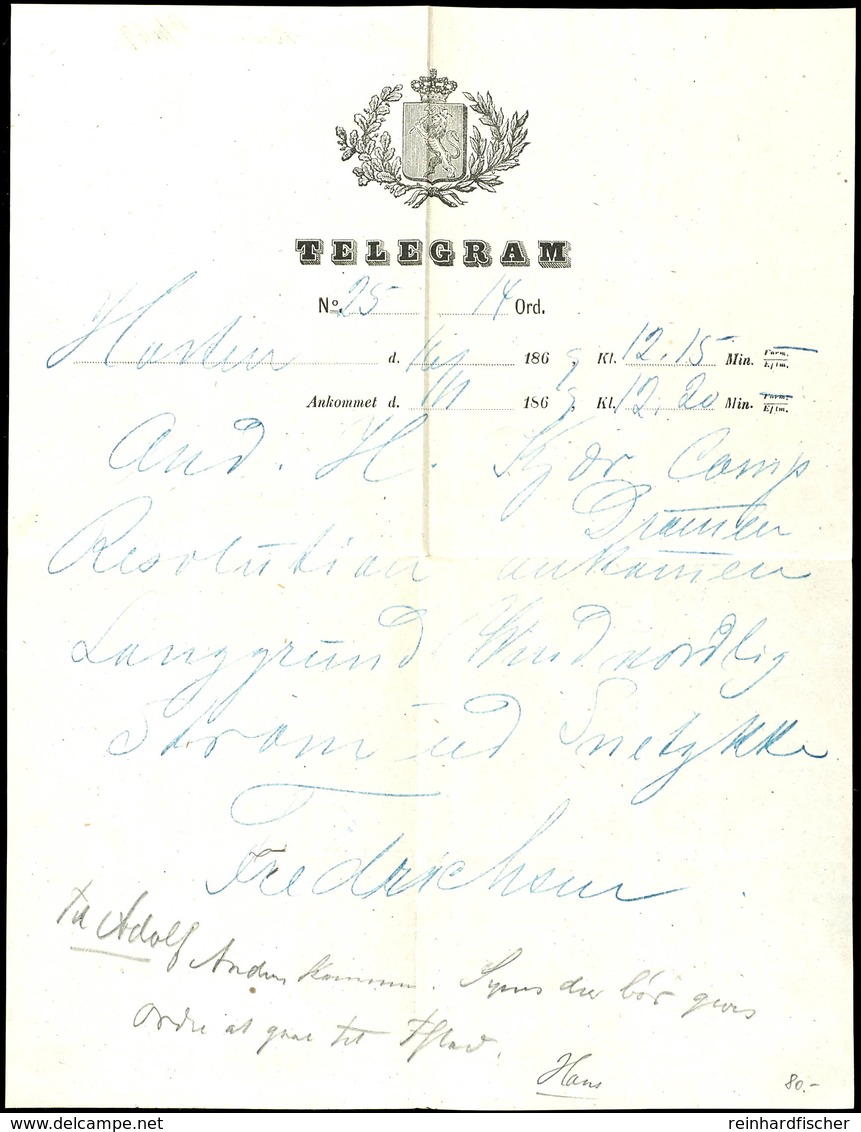 TELEGRAM
No. 25 14 Ord.
Horten d. 186 9 Kl. 12.15 Min. Form. Eftm.
Ankommet d. 186 9 Kl. 12.20 Min. Form. Eftm.
And. H. Kjær Comp
Dramen
Resolution ankomen
Langgrund Vind nordlig
Strøm ud Snetykke
Fredrichsen
Til Adolf
Anders kommer. Synes der bør gives
Ordre at gaae til
Hans
80.-
reinhardfischer